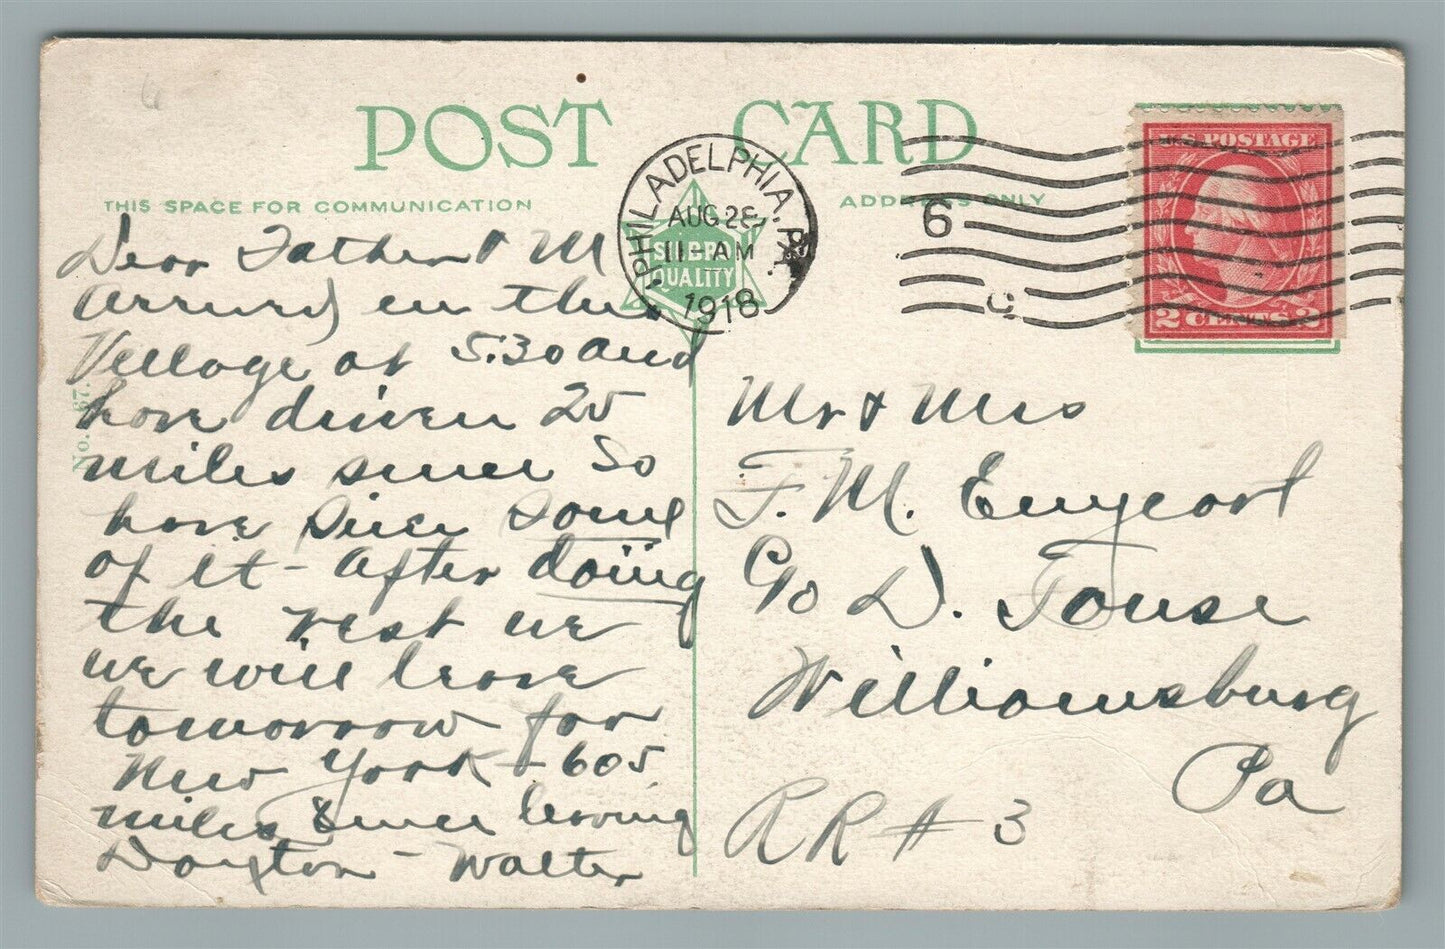 POST CARD
THIS SPACE FOR COMMUNICATION
ADDRESS ONLY
PHILADELPHIA, PA.
AUG 28
11 AM
1918
6
U.S. POSTAGE
2 CENTS 2
QUALITY
No.
Dear Father & M
Arrived in the
Village at 5:30 and
have driven 25
miles since So
have seen some
of it - After doing
the rest we
we will leave
tomorrow for
New York - 605
miles since leaving
Dayton - Walter
Mr & Mrs
F. M. Enyeart
c/o D. Fouse
Williamsburg
Pa
RR # 3